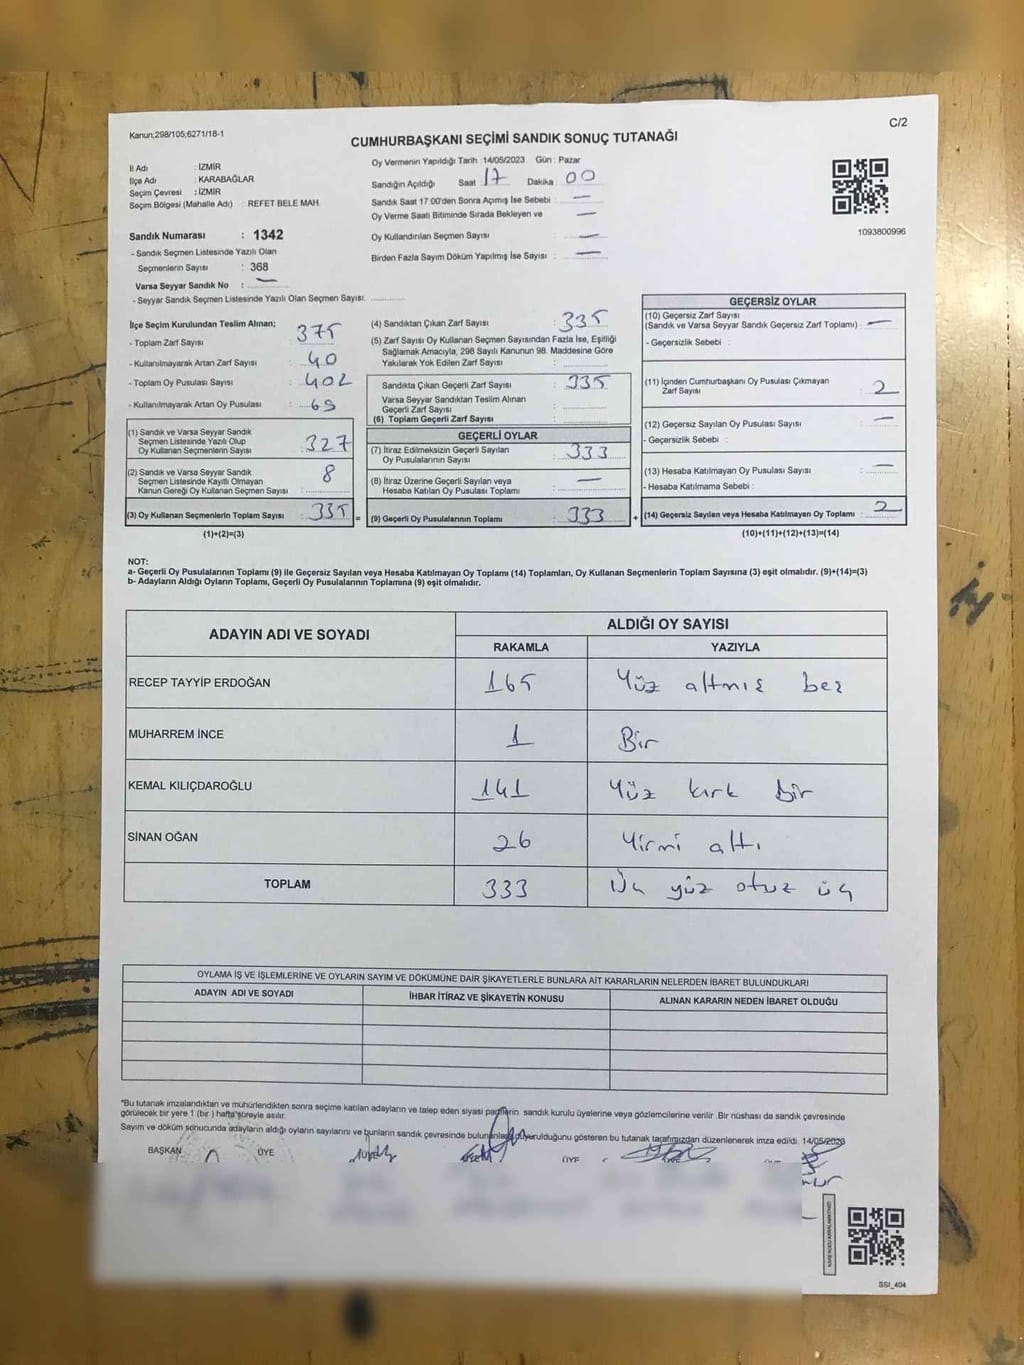 Kanun;298/105,6271/18-1
C/2
CUMHURBAŞKANI SEÇİMİ SANDIK SONUÇ TUTANAĞI
İl Adı : İZMİR
İlçe Adı : KARABAĞLAR
Seçim Çevresi : İZMİR
Seçim Bölgesi (Mahalle Adı) : REFET BELE MAH.
Sandık Numarası : 1342
- Sandık Seçmen Listesinde Yazılı Olan
Seçmenlerin Sayısı : 368
Varsa Seyyar Sandık No : —
- Seyyar Sandık Seçmen Listesinde Yazılı Olan Seçmen Sayısı: ............
Oy Vermenin Yapıldığı Tarih : 14/05/2023 Gün : Pazar
Sandığın Açıldığı Saat : 17 Dakika : 00
Sandık Saat 17:00'den Sonra Açımış İse Sebebi : —
Oy Verme Saati Bitiminde Sırada Bekleyen ve —
Oy Kullandırılan Seçmen Sayısı : —
Birden Fazla Sayım Döküm Yapılmış İse Sayısı : —
1093800996
İlçe Seçim Kurulundan Teslim Alınan;
- Toplam Zarf Sayısı : 375
- Kullanılmayarak Artan Zarf Sayısı : 40
- Toplam Oy Pusulası Sayısı : 402
- Kullanılmayarak Artan Oy Pusulası : 69
(1) Sandık ve Varsa Seyyar Sandık
Seçmen Listesinde Yazılı Olup
Oy Kullanan Seçmenlerin Sayısı : 327
(2) Sandık ve Varsa Seyyar Sandık
Seçmen Listesinde Kayıtlı Olmayan
Kanun Gereği Oy Kullanan Seçmen Sayısı : 8
(3) Oy Kullanan Seçmenlerin Toplam Sayısı : 335 =
(1)+(2)=(3)
(4) Sandıktan Çıkan Zarf Sayısı : 335
(5) Zarf Sayısı Oy Kullanan Seçmen Sayısından Fazla İse, Eşitliği
Sağlamak Amacıyla; 298 Sayılı Kanunun 98. Maddesine Göre
Yakılarak Yok Edilen Zarf Sayısı : ............
Sandıkta Çıkan Geçerli Zarf Sayısı : 335
Varsa Seyyar Sandıktan Teslim Alınan
Geçerli Zarf Sayısı : ............
(6) Toplam Geçerli Zarf Sayısı : ............
GEÇERLİ OYLAR
(7) İtiraz Edilmeksizin Geçerli Sayılan
Oy Pusulalarının Sayısı : 333
(8) İtiraz Üzerine Geçerli Sayılan veya
Hesaba Katılan Oy Pusulası Toplamı : —
(9) Geçerli Oy Pusulalarının Toplamı : 333 +
GEÇERSİZ OYLAR
(10) Geçersiz Zarf Sayısı
(Sandık ve Varsa Seyyar Sandık Geçersiz Zarf Toplamı) : —
- Geçersizlik Sebebi :
(11) İçinden Cumhurbaşkanı Oy Pusulası Çıkmayan
Zarf Sayısı : 2
(12) Geçersiz Sayılan Oy Pusulası Sayısı : —
- Geçersizlik Sebebi :
(13) Hesaba Katılmayan Oy Pusulası Sayısı : —
- Hesaba Katılmama Sebebi :
(14) Geçersiz Sayılan veya Hesaba Katılmayan Oy Toplamı : 2
(10)+(11)+(12)+(13)=(14)
NOT:
a- Geçerli Oy Pusulalarının Toplamı (9) ile Geçersiz Sayılan veya Hesaba Katılmayan Oy Toplamı (14) Toplamları, Oy Kullanan Seçmenlerin Toplam Sayısına (3) eşit olmalıdır. (9)+(14)=(3)
b- Adayların Aldığı Oyların Toplamı, Geçerli Oy Pusulalarının Toplamına (9) eşit olmalıdır.
ADAYIN ADI VE SOYADI
ALDIĞI OY SAYISI
RAKAMLA YAZIYLA
RECEP TAYYİP ERDOĞAN 165 Yüz altmış beş
MUHARREM İNCE 1 Bir
KEMAL KILIÇDAROĞLU 141 Yüz kırk bir
SİNAN OĞAN 26 Yirmi altı
TOPLAM 333 Üç yüz otuz üç
OYLAMA İŞ VE İŞLEMLERİNE VE OYLARIN SAYIM VE DÖKÜMÜNE DAİR ŞİKAYETLERLE BUNLARA AİT KARARLARIN NELERDEN İBARET BULUNDUKLARI
ADAYIN ADI VE SOYADI İHBAR İTİRAZ VE ŞİKAYETİN KONUSU ALINAN KARARIN NEDEN İBARET OLDUĞU
*Bu tutanak imzalandıktan ve mühürlendikten sonra seçime katılan adayların ve talep eden siyasi partilerin sandık kurulu üyelerine veya gözlemcilerine verilir .Bir nüshası da sandık çevresinde
görülecek bir yere 1 (bir ) hafta süreyle asılır.
Sayım ve döküm sonucunda adayların aldığı oyların sayılarını ve bunların sandık çevresinde bulunanlara duyurulduğunu gösteren bu tutanak tarafımızdan düzenlenerek imza edildi. 14/05/2023
BAŞKAN ÜYE ÜYE
SSI_404